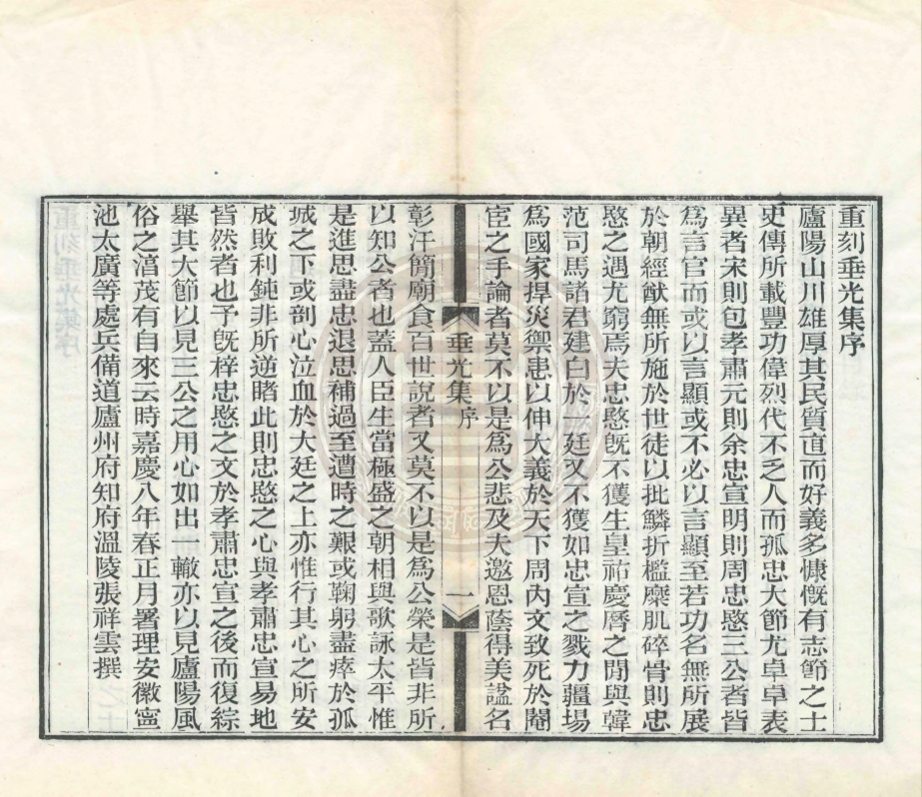 重刻垂光集序
廬陽山川雄厚其民質直而好義多慷慨有志節之士
史傳所載豐功偉烈代不乏人而孤忠大節尤卓卓表
異者宋則包孝肅元則余忠宣明則周忠愍三公者皆
為言官而或以言顯或不必以言顯至若功名無所展
於朝經猷無所施於世徒以批鱗折檻糜肌碎骨則忠
愍之遇尤窮焉夫忠愍旣不獲生皇祐慶曆之閒與韓
范司馬諸君建白於一廷又不獲如忠宣之戮力疆場
為國家捍災禦患以伸大義於天下周內文致死於閹
宦之手論者莫不以是為公悲及夫邀恩蔭得美諡名
垂光集
序
一
彰汗簡廟食百世說者又莫不以是為公榮是皆非所
以知公者也蓋人臣生當極盛之朝相與歌詠太平惟
是進思盡忠退思補過至遭時之艱或鞠躬盡瘁於孤
城之下或剖心泣血於大廷之上亦惟行其心之所安
成敗利鈍非所逆睹此則忠愍之心與孝肅忠宣易地
皆然者也予旣梓忠愍之文於孝肅忠宣之後而復綜
舉其大節以見三公之用心如出一轍亦以見廬陽風
俗之湻茂有自來云時嘉慶八年春正月署理安徽寧
池太廣等處兵備道廬州府知府溫陵張祥雲撰